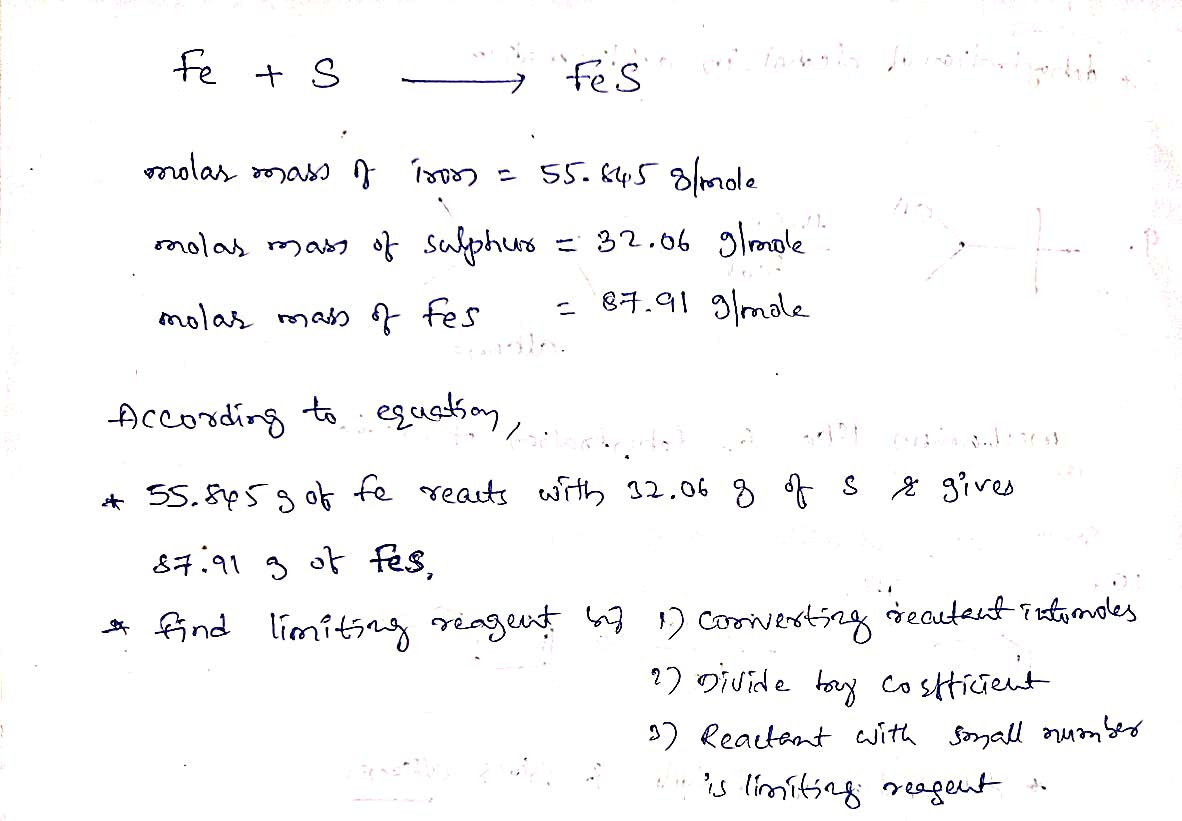 Fe + S ⟶ FeS
molar mass of iron = 55.845 g/mole
molar mass of sulphur = 32.06 g/mole
molar mass of FeS = 87.91 g/mole
According to equation,
* 55.845 g of Fe reacts with 32.06 g of S & gives
87.91 g of FeS,
* find limiting reagent by 1) converting reactant into moles
2) Divide by coefficient
3) Reactant with small number
is limiting reagent.